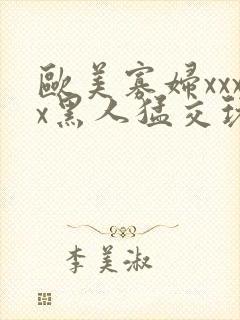 歐美寡婦xxx
x黑人猛交
李美淑